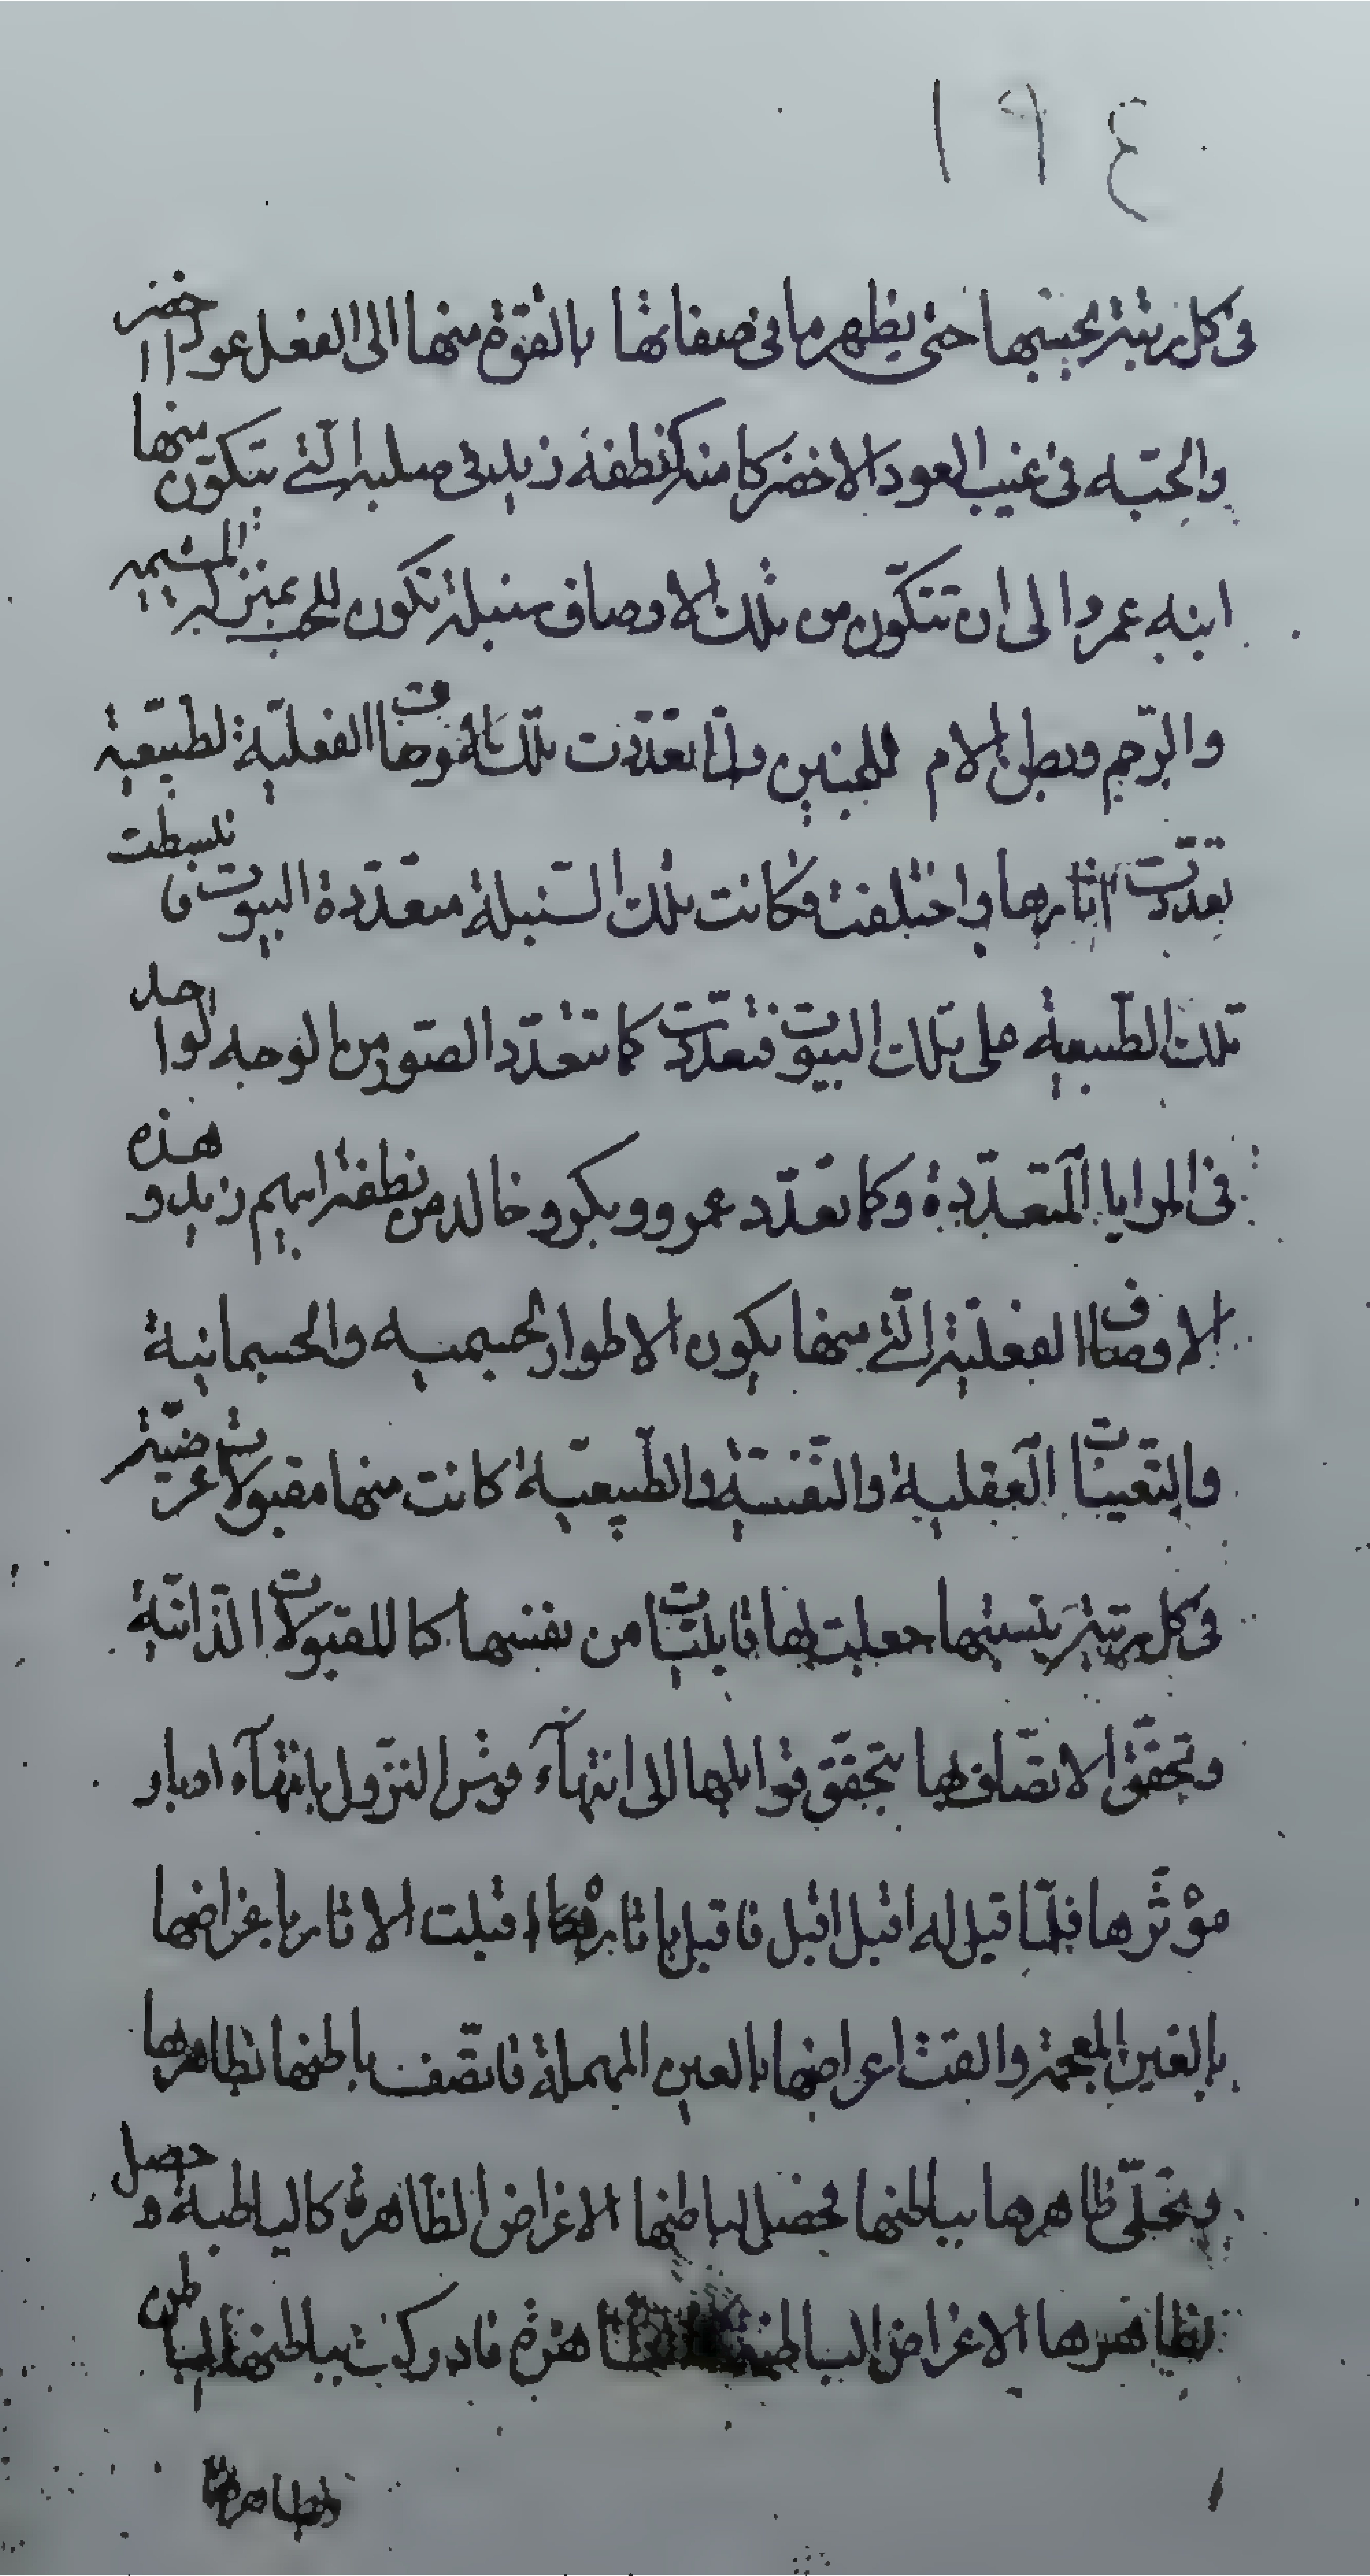 ١٩٤
فى كل رتبة بحسبها حتى يظهر ما فى صفاتها بالقوة منها الى الفعل عودا اخضر
والحبه فى غيب العود الاخضر كامنة كنطفة زيد فى صلبه التى يتكون منها
ابنه عمروا الى ان تتكون من تلك الاوصاف سنبلة تكون للحب بمنزلة المشيمه
والرحم وبطن الام للجنين ولما تعددت تلك الاوصاف الفعلية لطبيعة
تعددت اثارها واختلفت فكانت تلك السنبلة متعددة البيوت فانبسطت
تلك الطبيعة على تلك البيوت فتعددت كما تتعدد الصور من الوجه الواحد
فى المرايا المتعددة وكما تعدد عمرو وبكر وخالد من نطفة ابيهم زيد و هذه
الاوصاف الفعلية التى منها يكون الاطوار الجسميه والجسمانية
والتعينات العقلية والنفسية والطبيعية كانت منها مقبولات عرضية
فى كل رتبة بنسبتها جعلت لها قابليات من نفسها كما للقبولات الذاتية
وتحقق الاتصاف بها بتحقق قوابلها الى انتهآء قوس النزول بانتهآء ادبار
مؤثرها فلما قيل له اقبل اقبل فاقبل باثاره اقبلت الاثار باغراضها
بالغين المعجمة والقت اعراضها بالعين المهملة فاتصف باطنها بظاهرها
وتحلى ظاهرها بباطنها فحصل لباطنها الاغراض الظاهرة كالباطنة و حصل
لظاهرها الاغراض الباطنة كالظاهرة فادركت بباطنها الباطن
وظاهرها